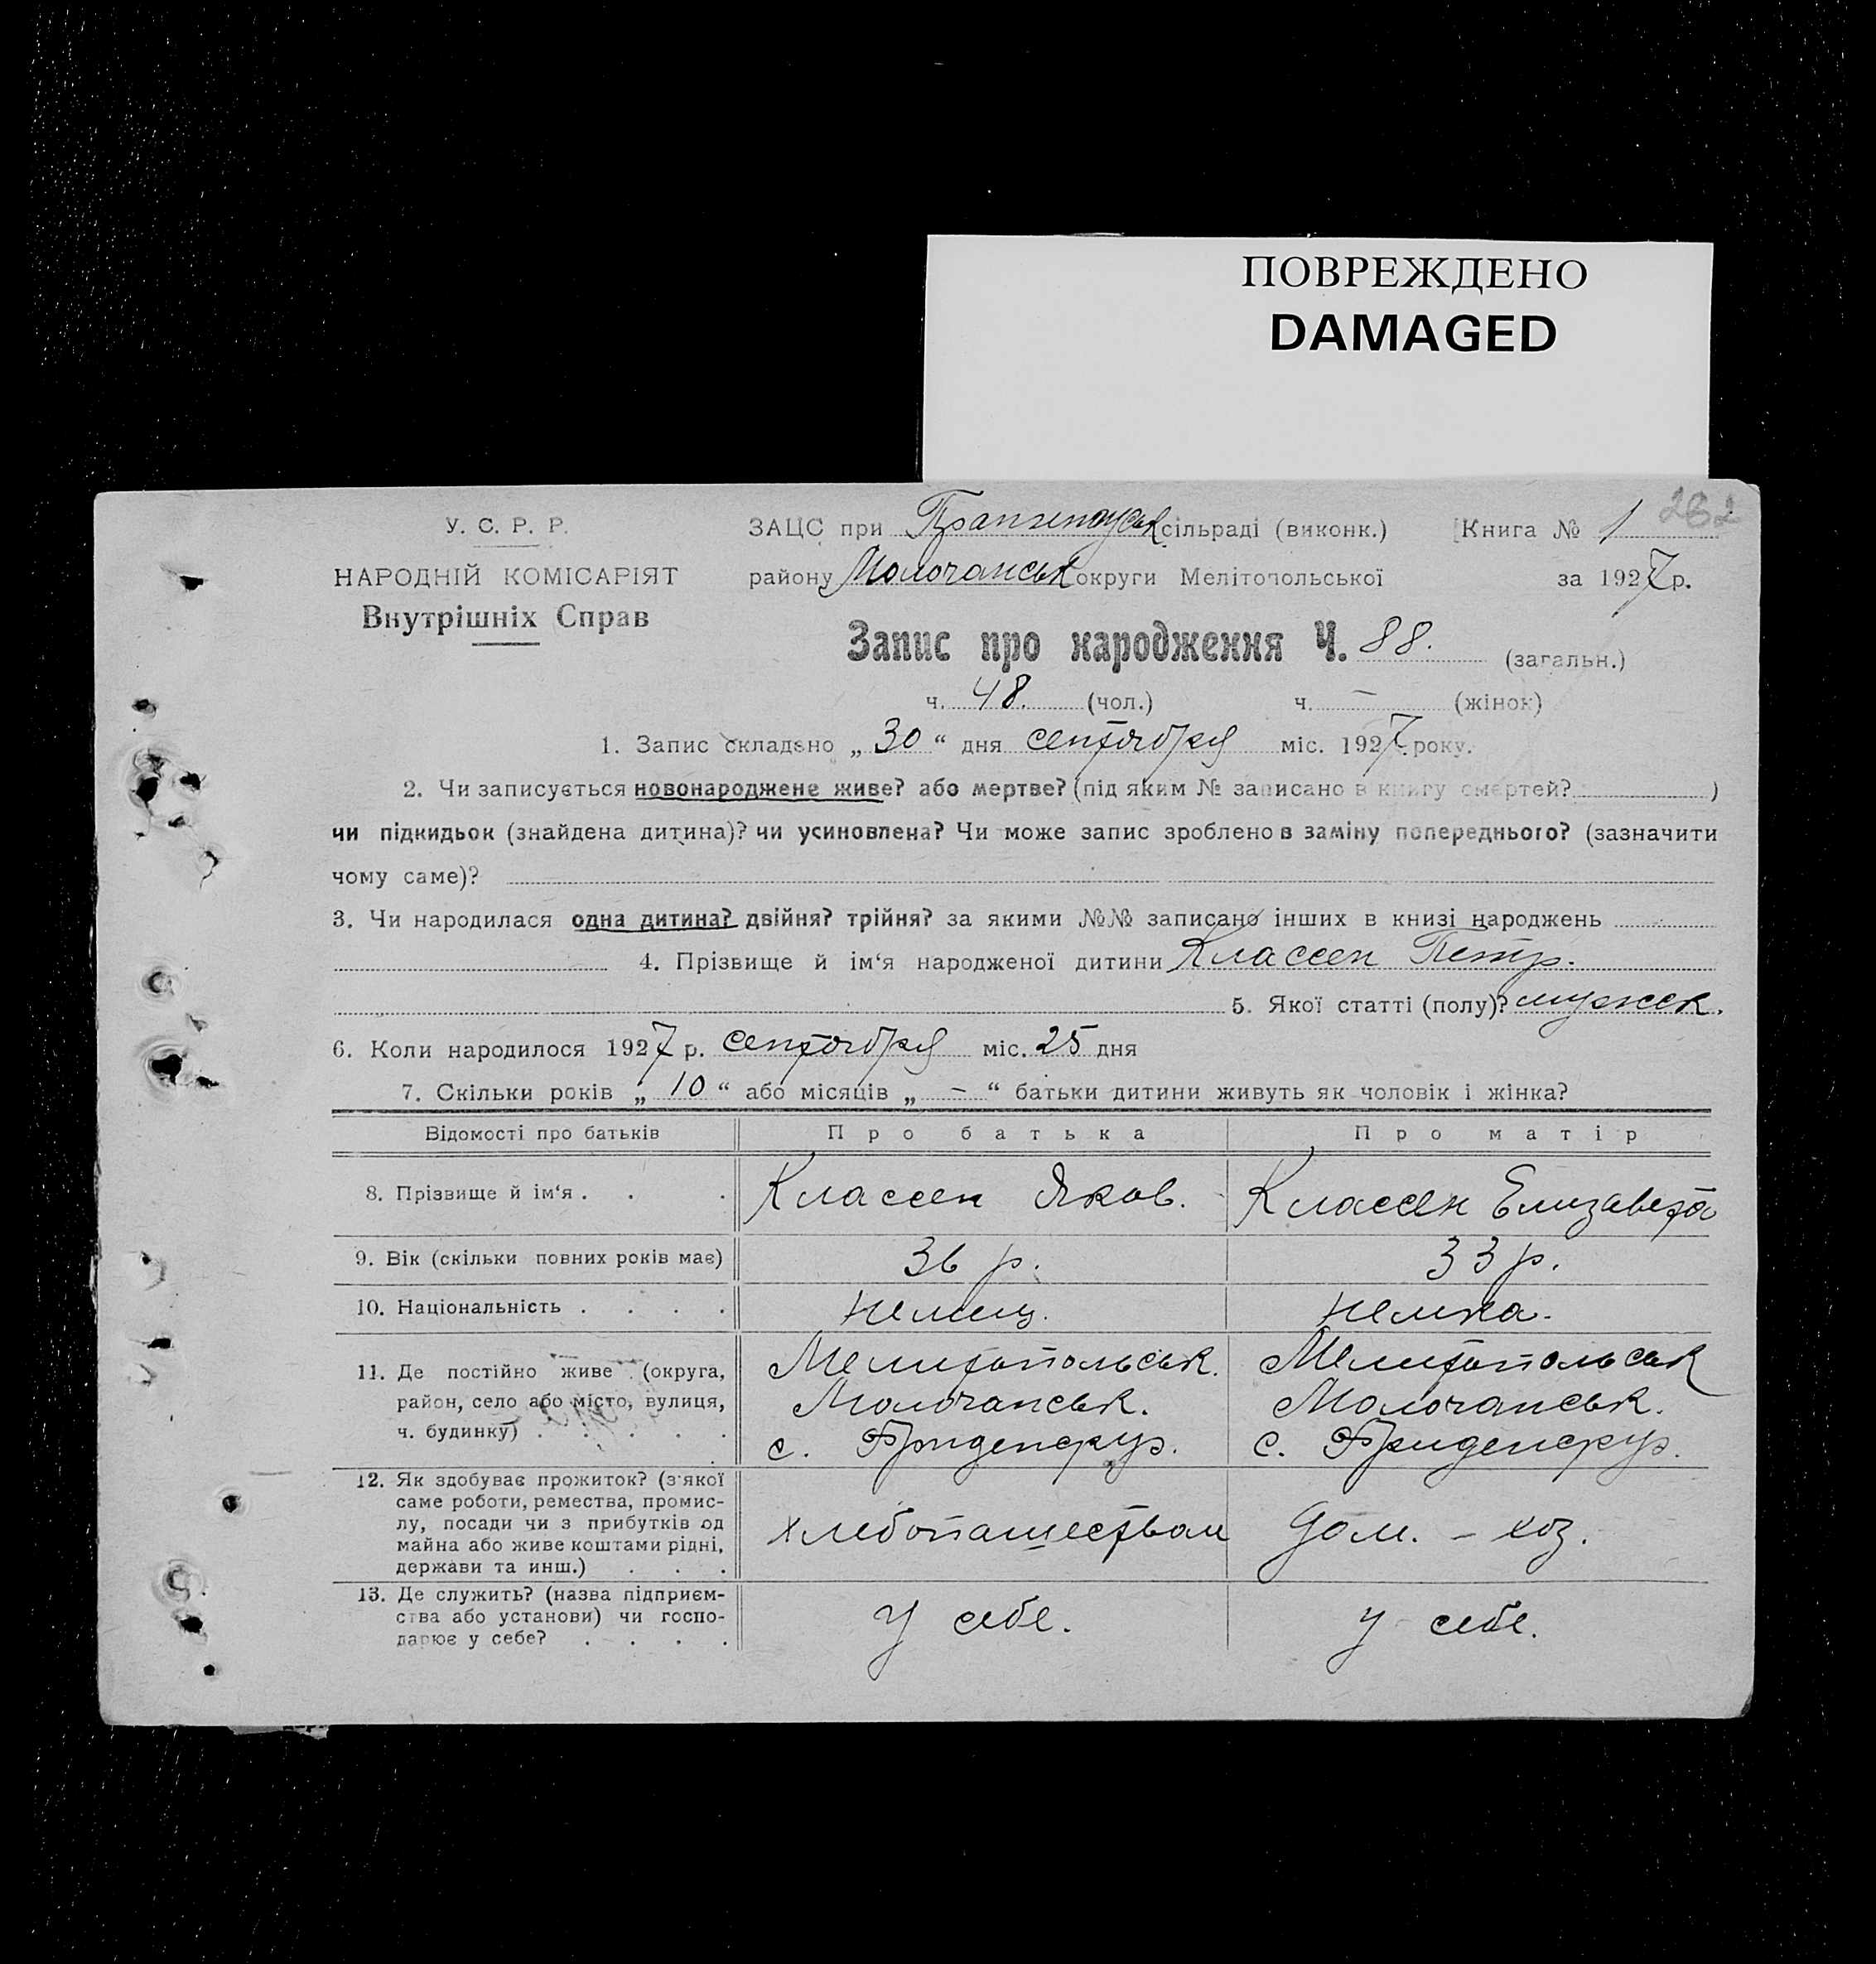 ПОВРЕЖДЕНО
DAMAGED
282
У. С. Р. Р.
НАРОДНІЙ КОМІСАРІЯТ
Внутрішніх Справ
ЗАЦС при сільраді (виконк.) Книга № 1
району Молочанськ округи Мелітопольської за 1927 р.
Запис про народження Ч. 88. (загальн.)
ч. 48. (чол.) ч. – (жінок)
1. Запис складено „ 30 “ дня сентября міс. 1927 року.
2. Чи записується новонароджене живе? або мертве? (під яким № записано в книгу смертей? )
чи підкидьок (знайдена дитина)? чи усиновлена? Чи може запис зроблено в заміну попереднього? (зазначити
чому саме)?
3. Чи народилася одна дитина? двійня? трійня? за якими №№ записано інших в книзі народжень
4. Прізвище й ім‘я народженої дитини Классен Петр.
5. Якої статті (полу)? мужск.
6. Коли народилося 1927 р. сентября міс. 25 дня
7. Скільки років „ 10 “ або місяців „ – “ батьки дитини живуть як чоловік і жінка?
Відомості про батьків Про батька Про матір
8. Прізвище й ім‘я . . . Классен Яков. Классен Елизавета
9. Вік (скільки повних років має) 36 р. 33 р.
10. Національність . . . . немец. немка.
11. Де постійно живе (округа, Мелитопольськ. Мелитопольськ
район, село або місто, вулиця, Молочанськ. Молочанськ.
ч. будинку) . . . . . с. Фриденсруэ. с. Фриденсруэ.
12. Як здобуває прожиток? (з якої
саме роботи, ремества, промис-
лу, посади чи з прибутків од
майна або живе коштами рідні,
держави та инш.) . . .
хлебопашеством дом. – хоз.
13. Де служить? (назва підприєм-
ства або установи) чи госпо-
дарює у себе? . . . .
у себе. у себе.